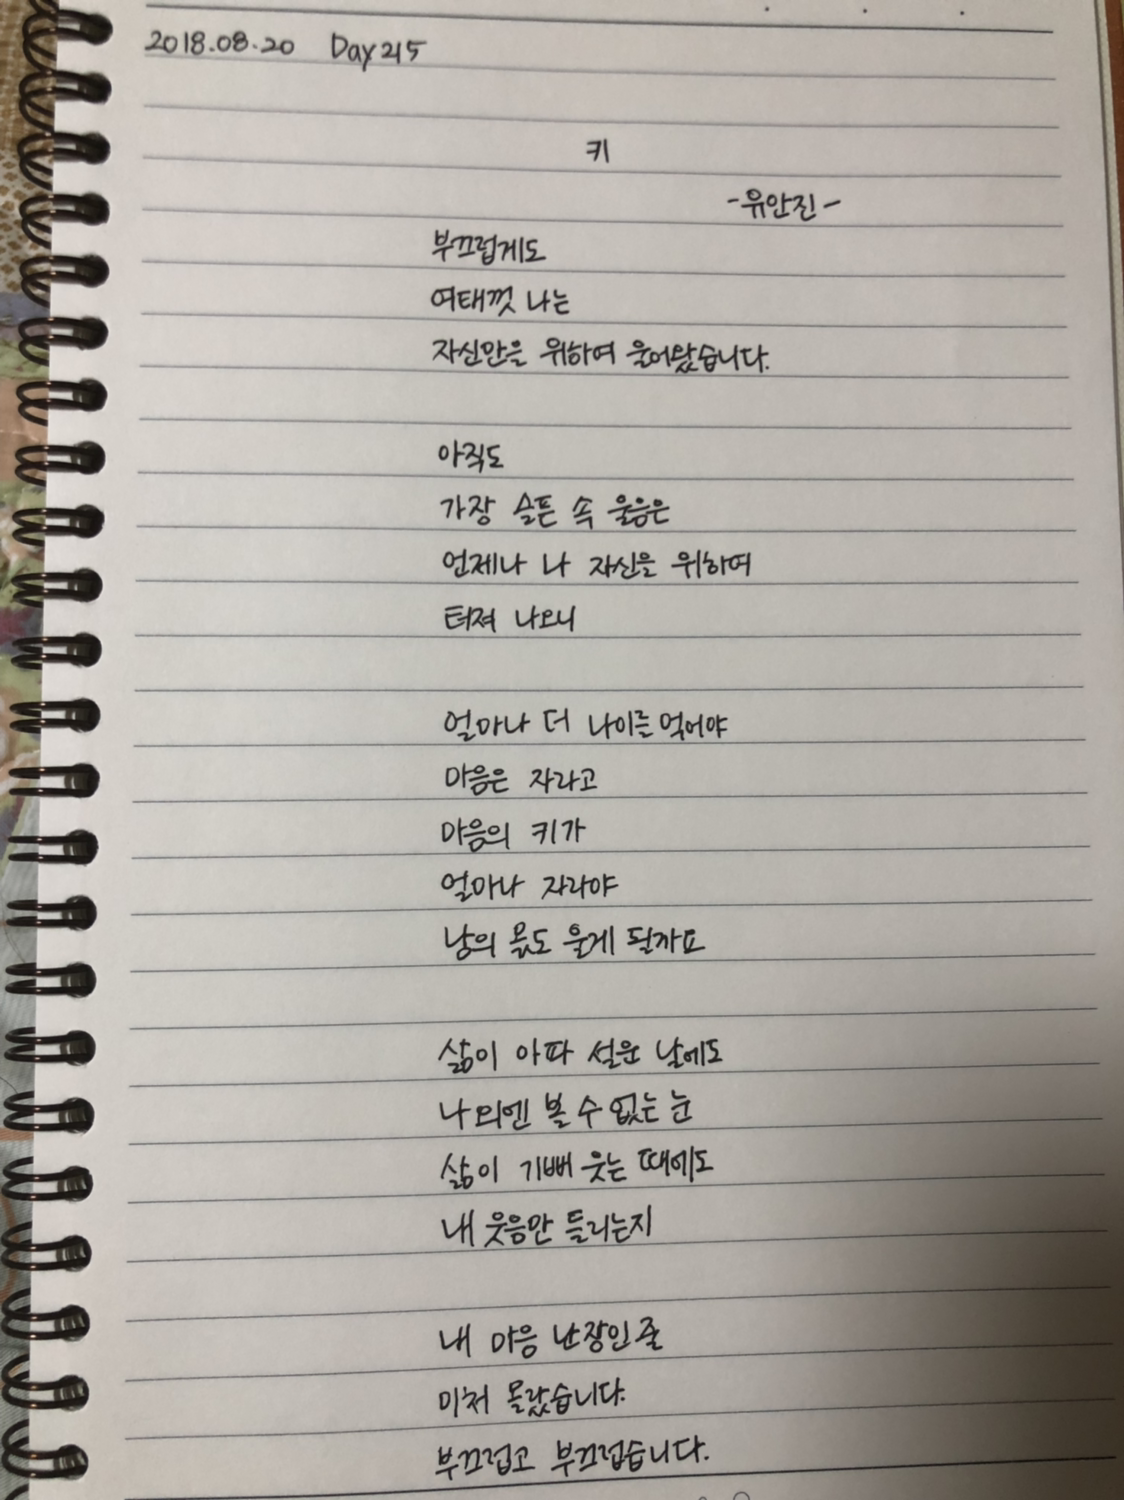 2018.08.20 Day 215
키
-유안진-
부끄럽게도
여태껏 나는
자신만을 위하여 울어왔습니다.
아직도
가장 슬픈 속 울음은
언제나 나 자신을 위하여
터져 나오니
얼마나 더 나이를 먹어야
마음은 자라고
마음의 키가
얼마나 자라야
남의 몫도 울게 될까요
삶이 아파 설운 날에도
나 외엔 볼 수 없는 눈
삶이 기뻐 웃는 때에도
내 웃음만 들리는지
내 마음 난장인 줄
미처 몰랐습니다.
부끄럽고 부끄럽습니다.